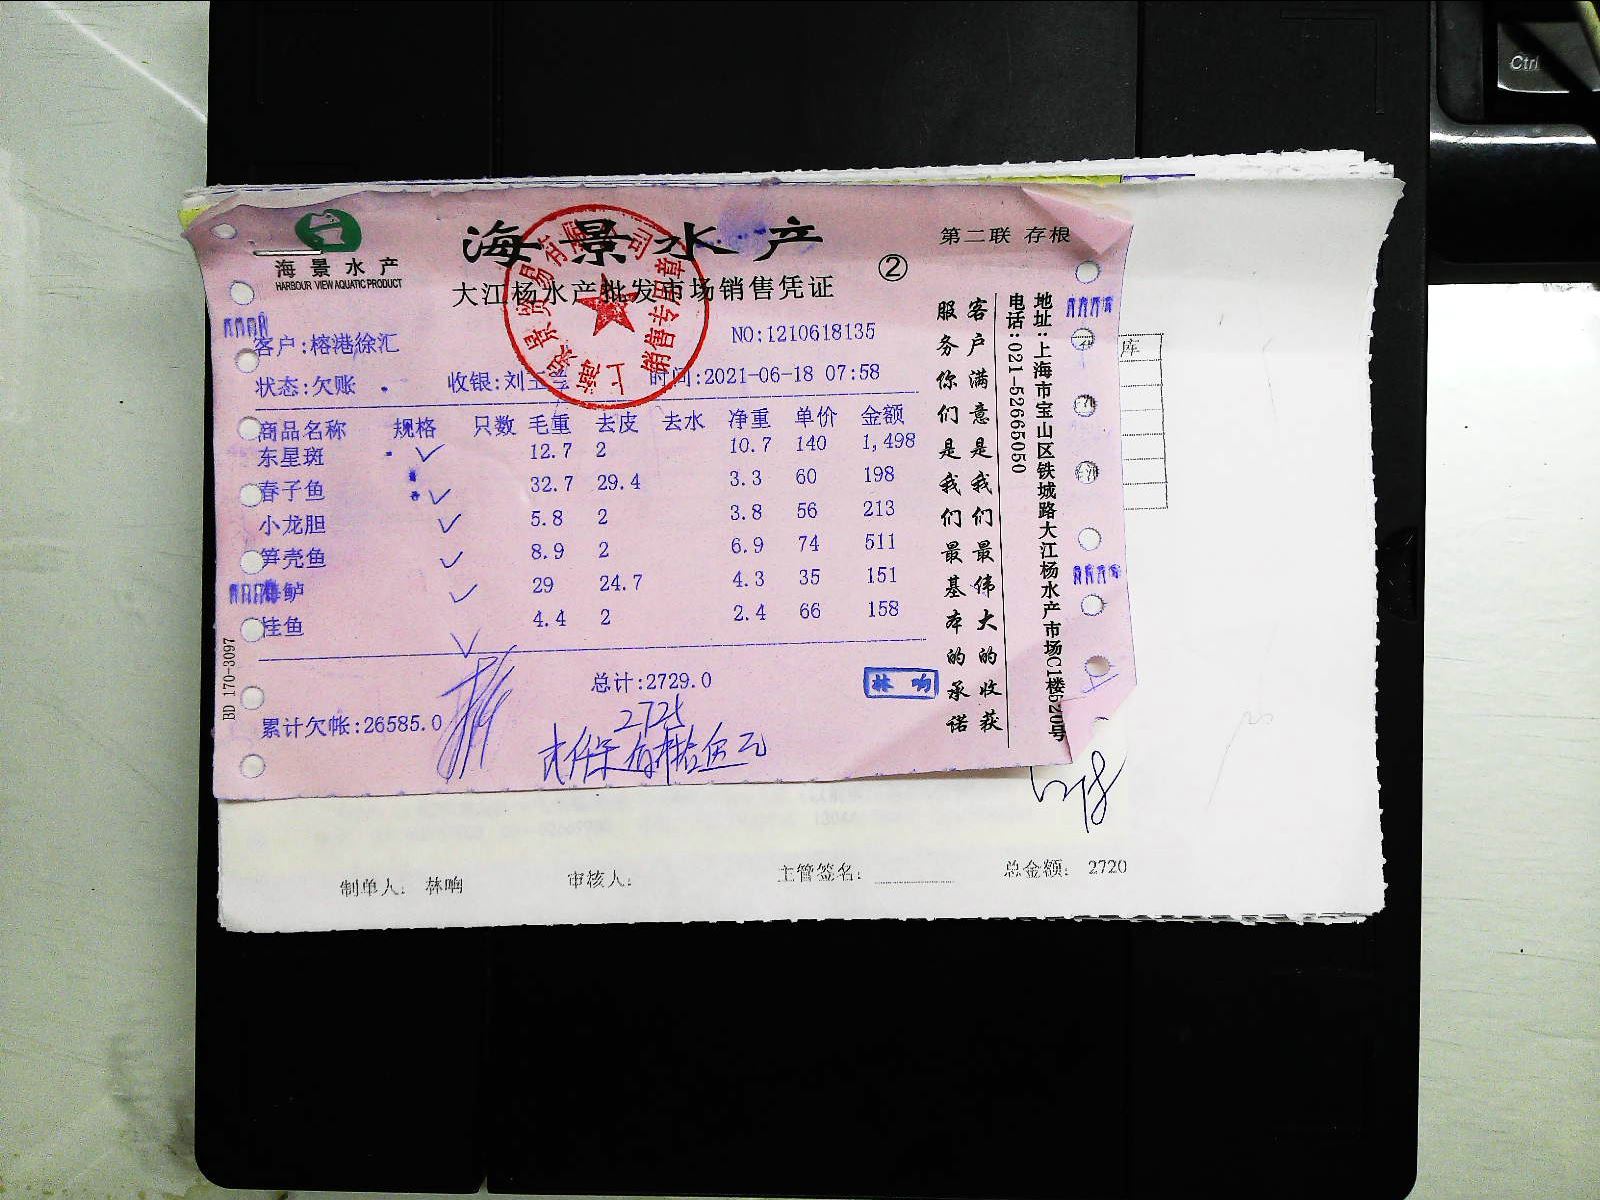 Ctrl
海景水产
HARBOUR VIEW AQUATIC PRODUCT
海景水产
大江杨水产批发市场销售凭证
②
第二联 存根
客户:榕港徐汇
NO:1210618135
状态:欠账
收银:刘
时间:2021-06-18 07:58
商品名称 规格 只数 毛重 去皮 去水 净重 单价 金额
东星斑 12.7 2 10.7 140 1,498
春子鱼 32.7 29.4 3.3 60 198
小龙胆 5.8 2 3.8 56 213
笋壳鱼 8.9 2 6.9 74 511
海鲈 29 24.7 4.3 35 151
桂鱼 4.4 2 2.4 66 158
总计:2729.0
林响
累计欠帐:26585.0
2725
客户满意是我们最伟大的收获
服务你们是我们最基本的承诺
地址:上海市宝山区铁城路大江杨水产市场C1楼520号
电话:021-52665050
BD 170-3097
销售专用章
库
制单人: 林响
审核人:
主管签名:
总金额: 2720